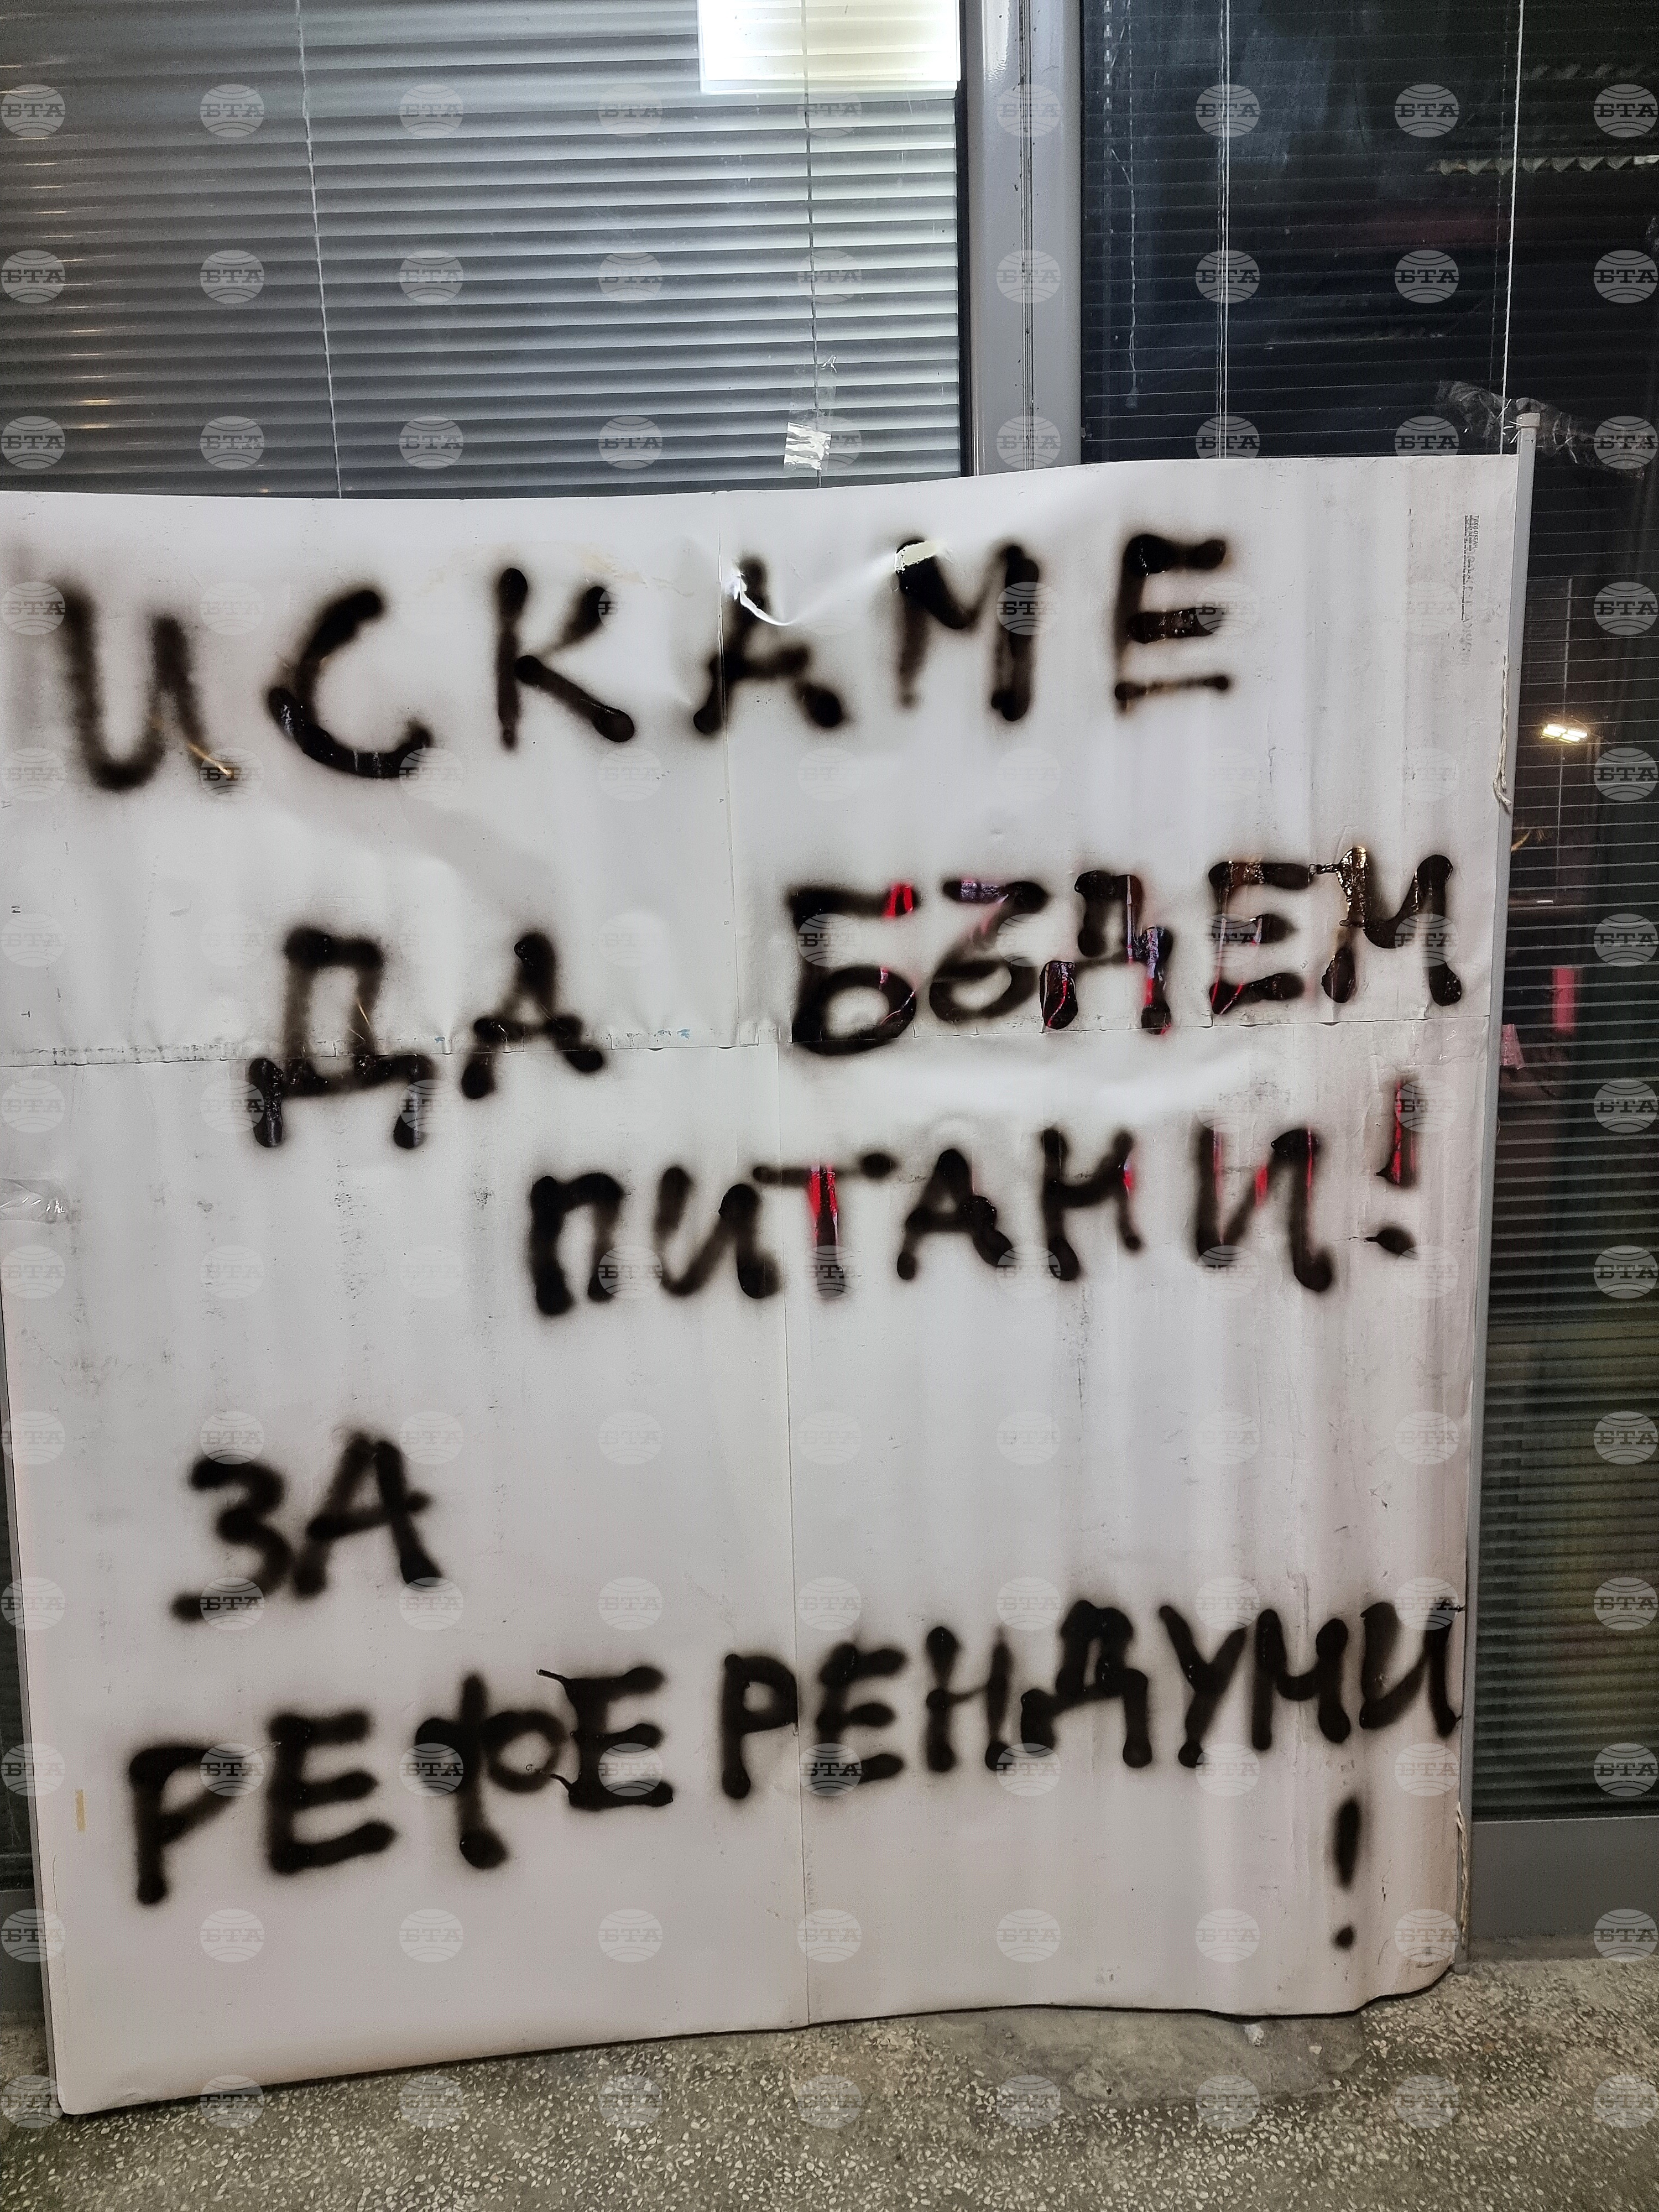 ИСКАМЕ
ДА БЪДЕМ
ПИТАНИ!
ЗА
РЕФЕРЕНДУМИ
!